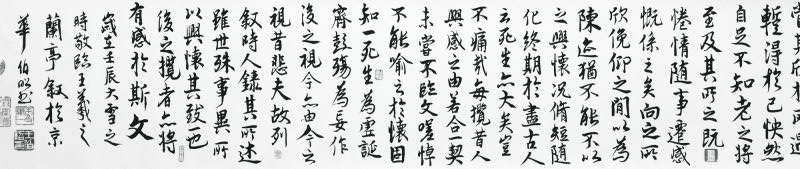 當其欣於所遇
暫得於己快然
自足不知老之將
至及其所之既
惓情隨事遷感
慨係之矣向之所
欣俛仰之閒以為
陳迹猶不能不以
之興懷況脩短隨
化終期於盡古人
云死生亦大矣豈
不痛哉每攬昔人
興感之由若合一契
未嘗不臨文嗟悼
不能喻之於懷固
知一死生為虛誕
齊彭殤為妄作
後之視今亦由今之
視昔悲夫故列
敘時人錄其所述
雖世殊事異所
以興懷其致一也
後之攬者亦將
有感於斯文
歲在壬辰大雪之
時敬臨王羲之
蘭亭敘於京
華